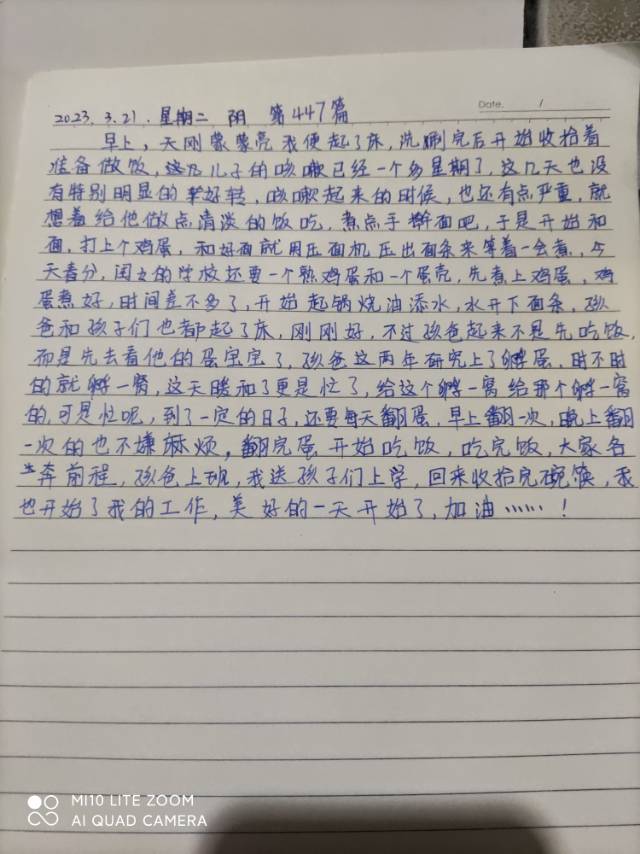 Date. /
2023.3.21.星期二 阴 第447篇
早上,天刚蒙蒙亮我便起了床,洗涮完后开始收拾着
准备做饭,儿子的咳嗽已经一个多星期了,这几天也没
有特别明显的好转,咳嗽起来的时候,也还有点严重,就
想着给他做点清淡的饭吃,煮点手擀面吧,于是开始和
面,打上个鸡蛋,和好面就用压面机压出面条来等着一会煮,今
天春分,闺女的学校还要一个熟鸡蛋和一个蛋壳,先煮上鸡蛋,鸡
蛋煮好,时间差不多了,开始起锅烧油添水,水开下面条,孩
爸和孩子们也都起了床,刚刚好,不过孩爸起来不是先吃饭,
而是先去看他的蛋宝宝了,孩爸这两年研究上了孵蛋,时不时
的就孵一窝,这天暖和了更是忙了,给这个孵一窝给那个孵一窝
的,可是忙呢,到了一定的日子,还要每天翻蛋,早上翻一次,晚上翻
一次的也不嫌麻烦,翻完蛋开始吃饭,吃完饭,大家各
奔前程,孩爸上班,我送孩子们上学,回来收拾完碗筷,我
也开始了我的工作,美好的一天开始了,加油……!
MI10 LITE ZOOM
AI QUAD CAMERA